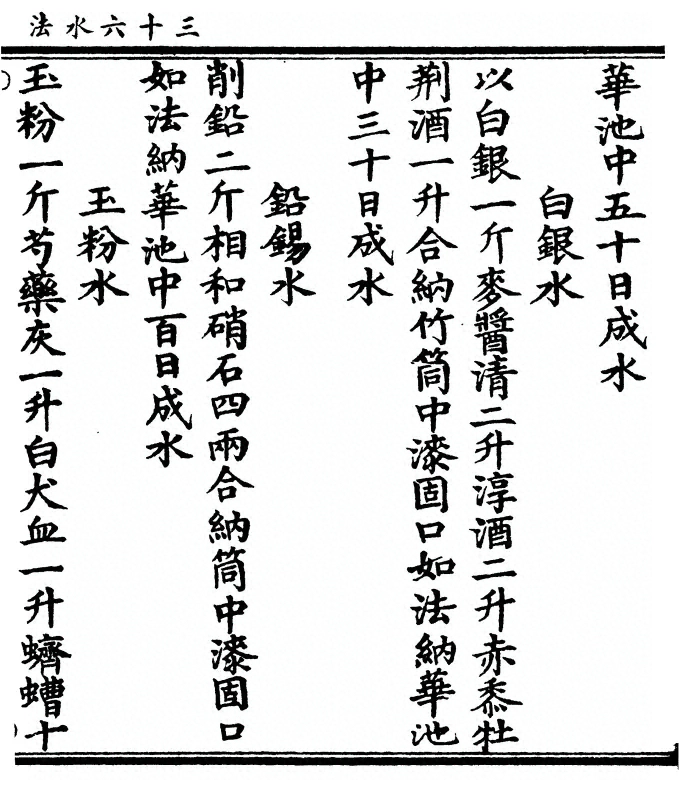 三十六水法
華池中五十日成水
白銀水
以白銀一斤麥醬清二升淳酒二升赤黍牡
荆酒一升合納竹筒中漆固口如法納華池
中三十日成水
鉛錫水
削鉛二斤相和硝石四兩合納筒中漆固口
如法納華池中百日成水
玉粉水
玉粉一斤芍藥灰一升白犬血一升蠐螬十